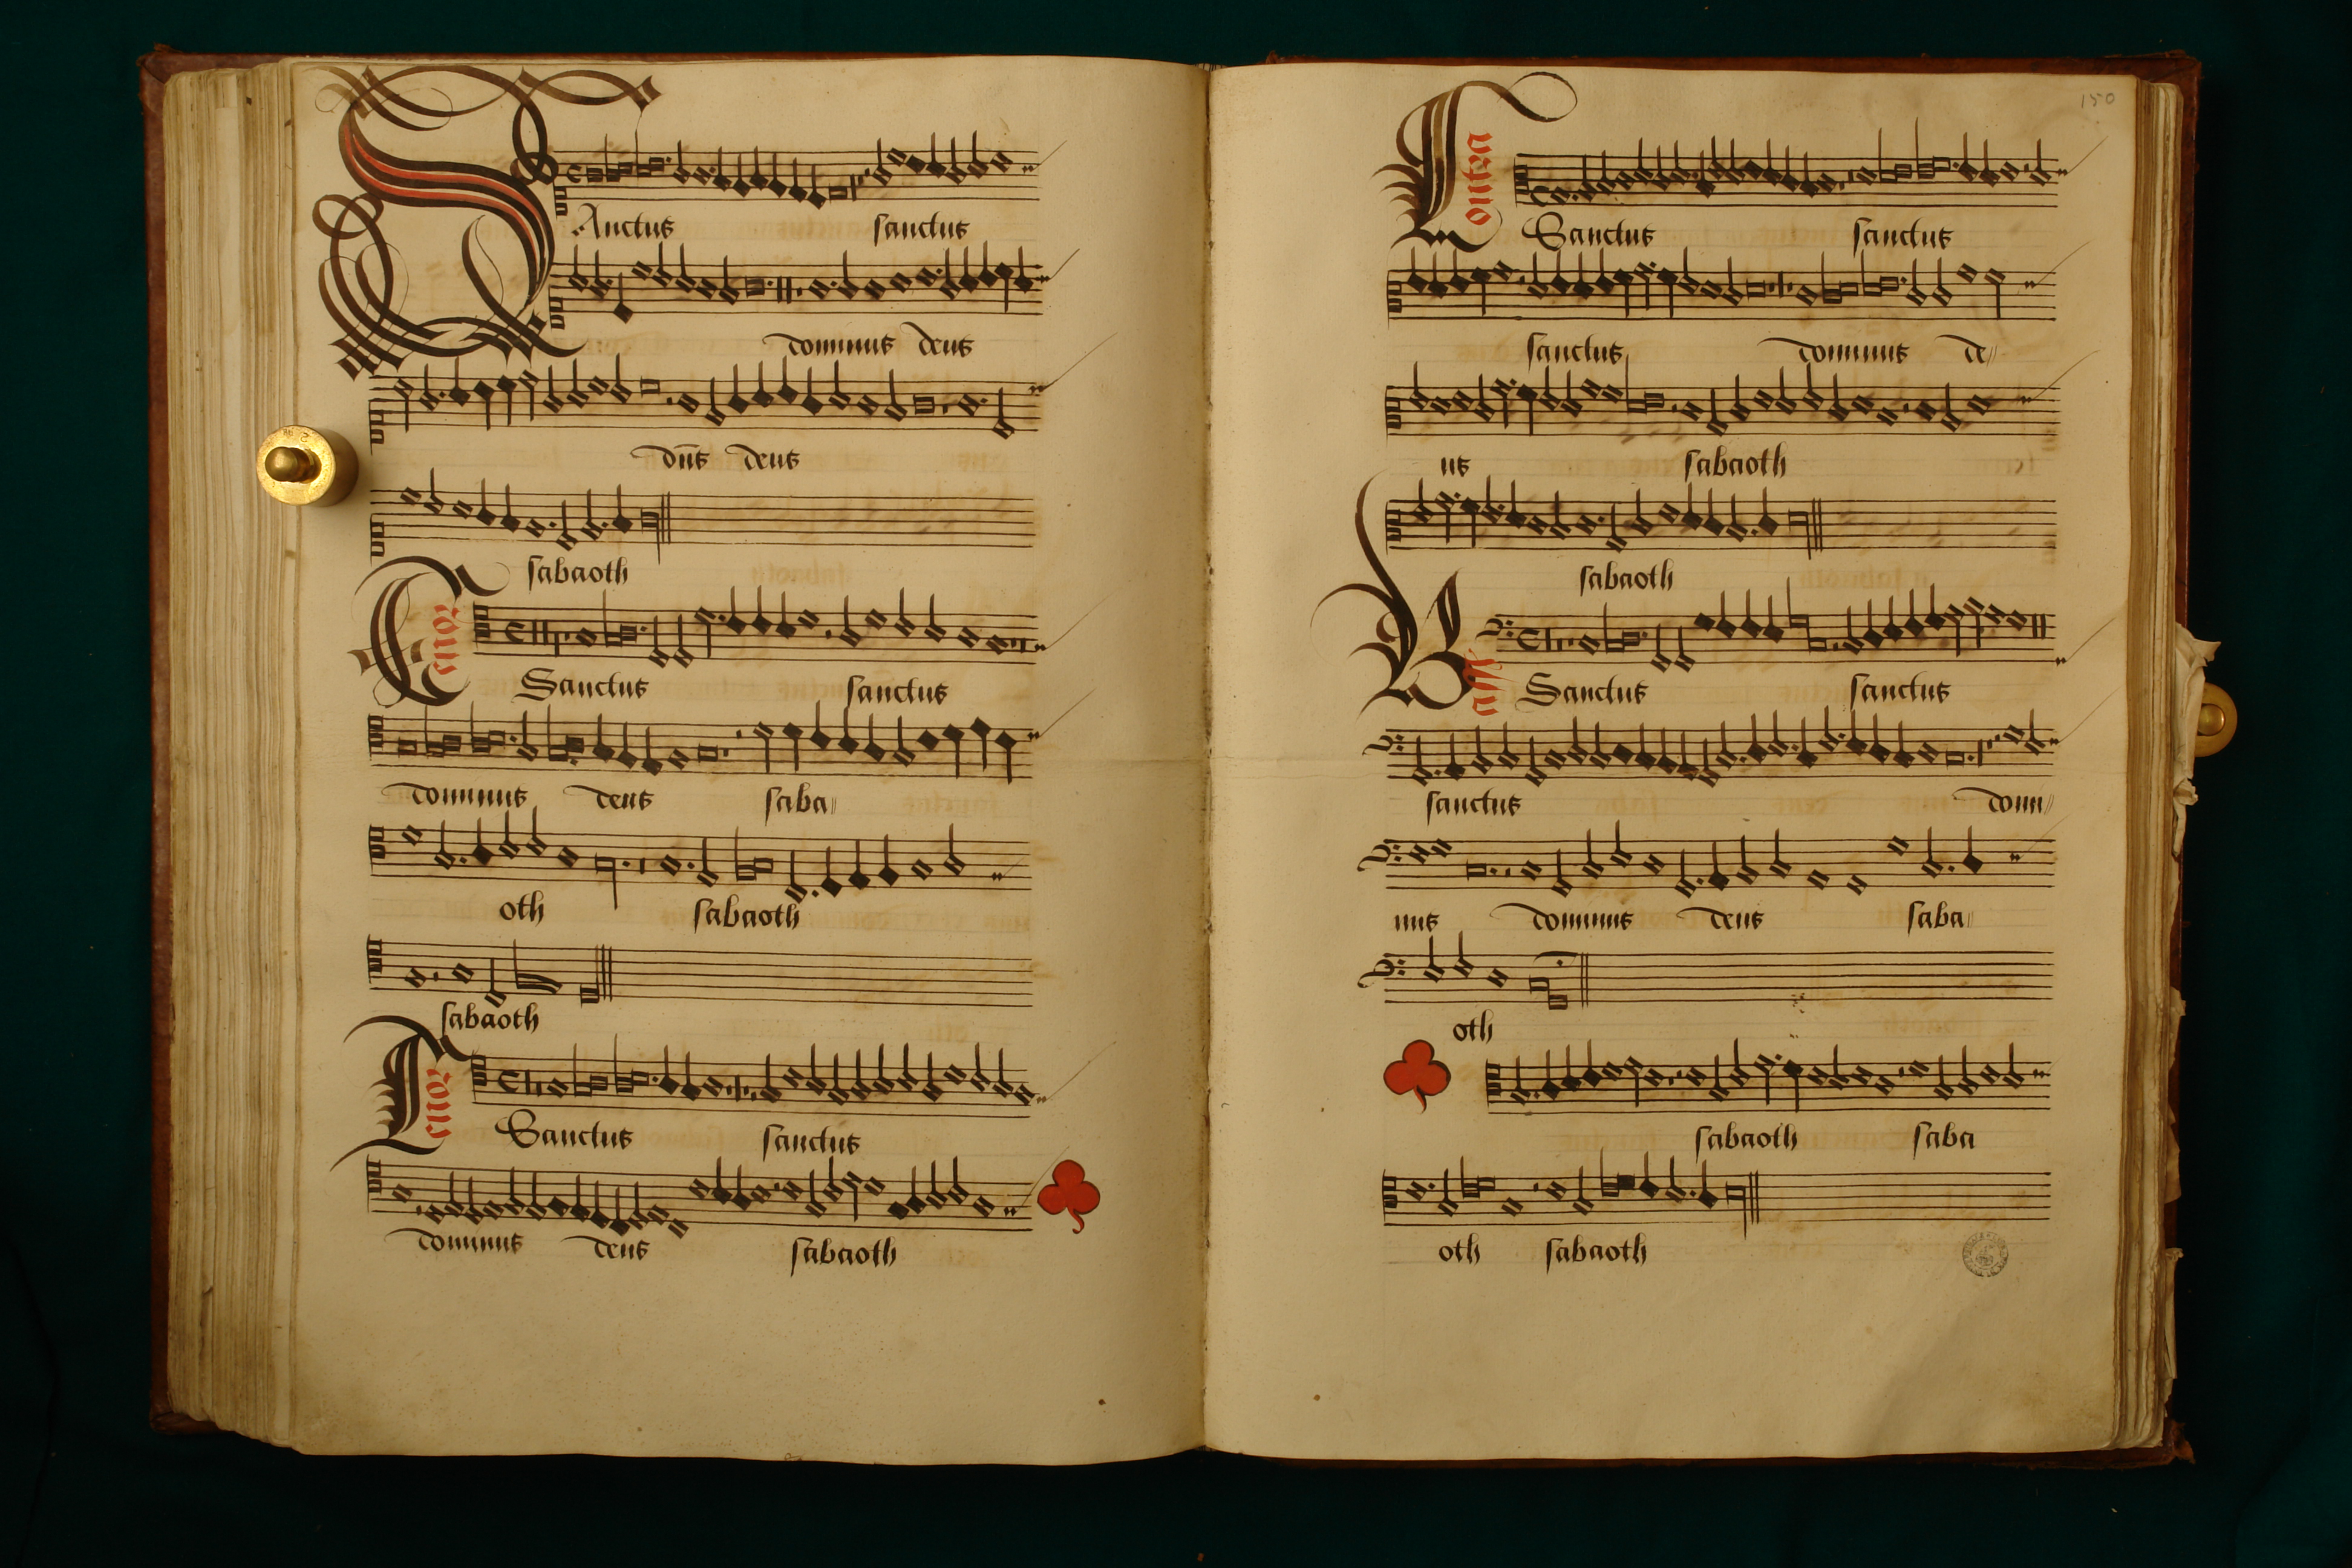 SAnctus sanctus
dominus deus
dñs deus
sabaoth
Tenor
Sanctus sanctus
dominus deus saba
oth sabaoth
sabaoth
Tenor
Sanctus sanctus
dominus deus sabaoth
150
Contra
Sanctus sanctus
sanctus dominus de
us sabaoth
sabaoth
Bass
Sanctus sanctus
sanctus domi
nus dominus deus saba
oth
sabaoth saba
oth sabaoth